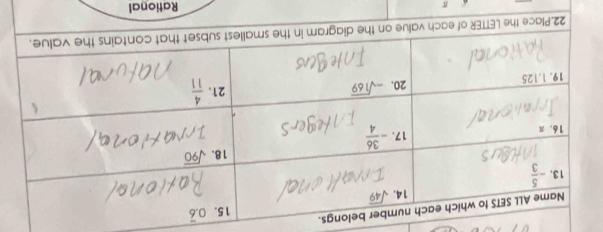 Name ALL SETS to which each number belongs.
13. -5/3
Intigers
14. √49
Irrational
15. 0.6̅
Rational
16. π
Irrational
17. -36/4
Integers
18. √90
Irrational
19. 1.125
Rational
20. -√169
Integers
21. 4/11
natural
22. Place the LETTER of each value on the diagram in the smallest subset that contains the value.
Rational